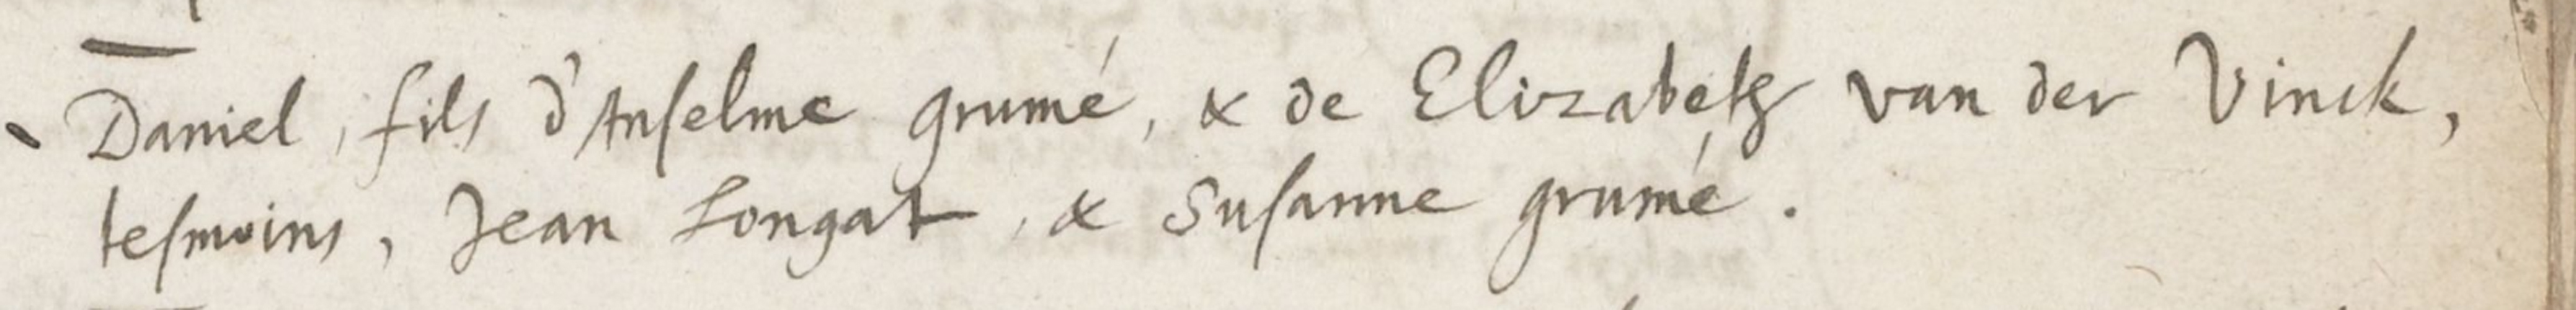 Daniel, fils d'Anselme grumé, & de Elizabeth van der Vinck,
tesmoins, Jean Longat, & Susanne grumé.